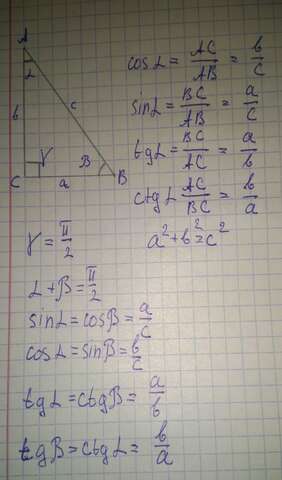 A
α
b
c
γ
β
C
a
B
cos α = AC/AB = b/c
sin α = BC/AB = a/c
tg α = BC/AC = a/b
ctg α AC/BC = b/a
γ = π/2
a² + b² = c²
α + β = π/2
sin α = cos β = a/c
cos α = sin β = b/c
tg α = ctg β = a/b
tg β = ctg α = b/a